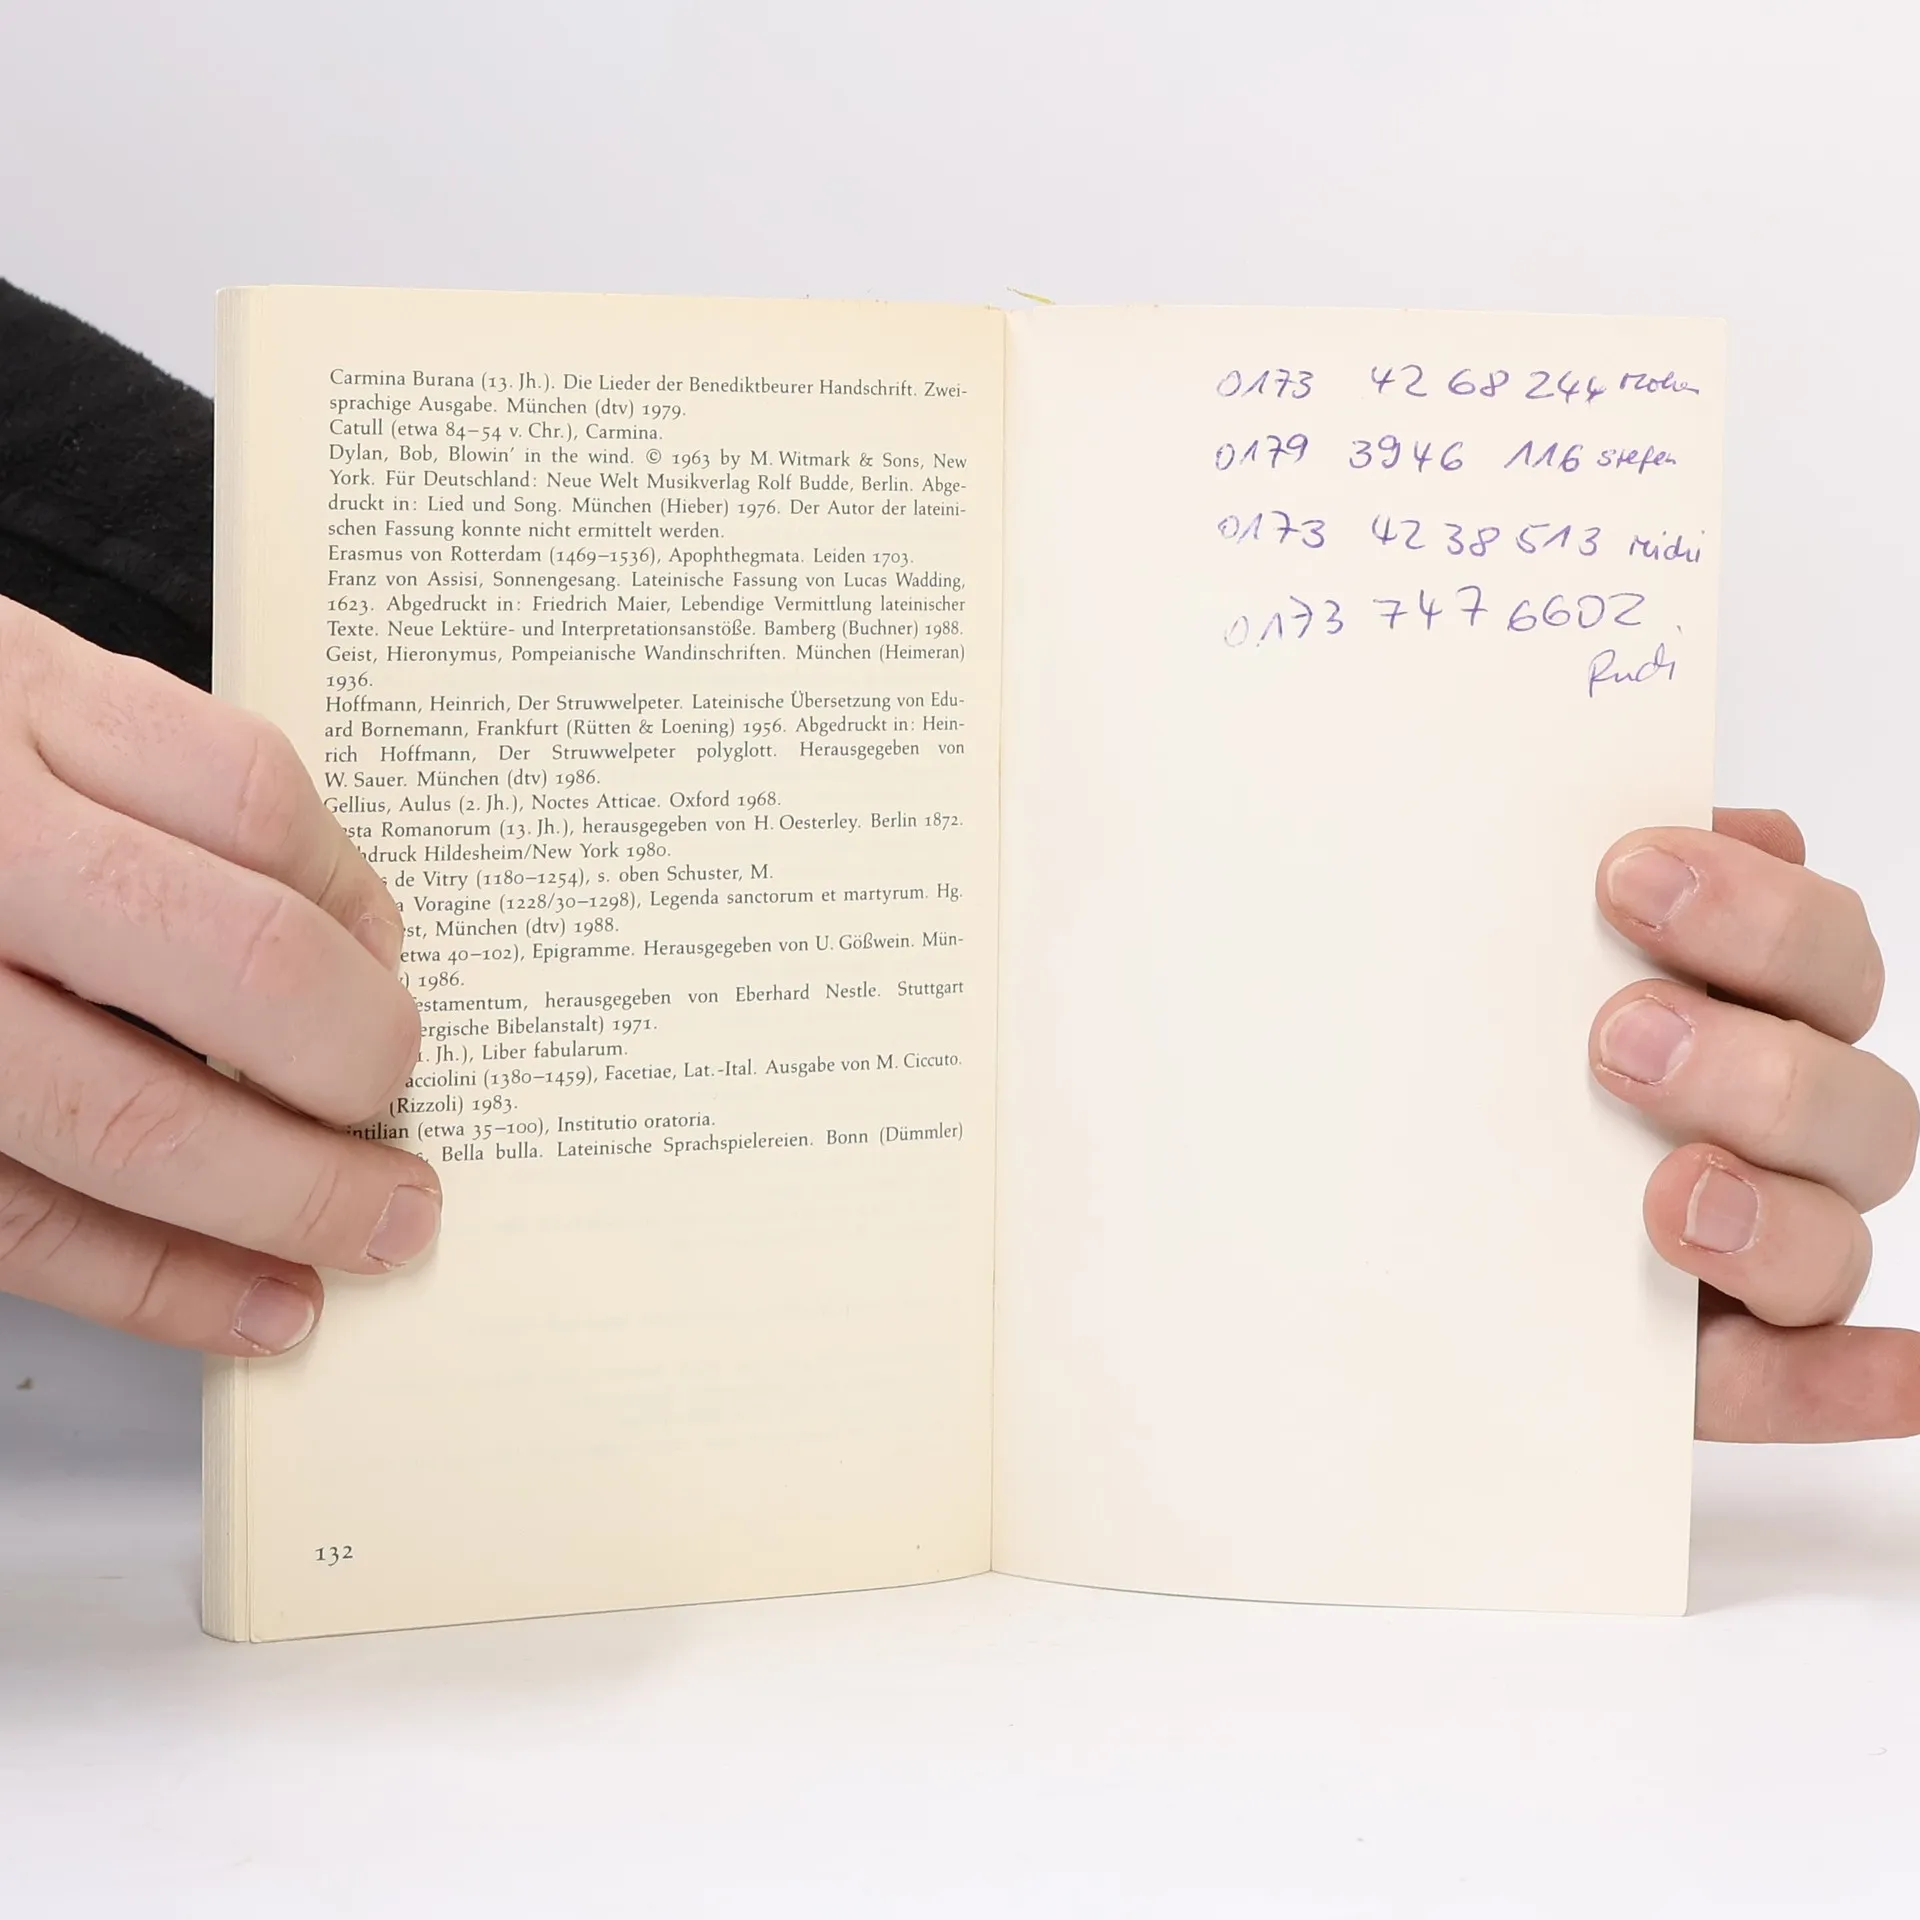 Carmina Burana (13. Jh.). Die Lieder der Benediktbeurer Handschrift. Zwei-
sprachige Ausgabe. München (dtv) 1979.
Catull (etwa 84–54 v. Chr.), Carmina.
Dylan, Bob, Blowin’ in the wind. © 1963 by M. Witmark & Sons, New
York. Für Deutschland: Neue Welt Musikverlag Rolf Budde, Berlin. Abge-
druckt in: Lied und Song. München (Hieber) 1976. Der Autor der lateini-
schen Fassung konnte nicht ermittelt werden.
Erasmus von Rotterdam (1469–1536), Apophthegmata. Leiden 1703.
Franz von Assisi, Sonnengesang. Lateinische Fassung von Lucas Wadding,
1623. Abgedruckt in: Friedrich Maier, Lebendige Vermittlung lateinischer
Texte. Neue Lektüre- und Interpretationsanstöße. Bamberg (Buchner) 1988.
Geist, Hieronymus, Pompeianische Wandinschriften. München (Heimeran)
1936.
Hoffmann, Heinrich, Der Struwwelpeter. Lateinische Übersetzung von Edu-
ard Bornemann, Frankfurt (Rütten & Loening) 1956. Abgedruckt in: Hein-
rich Hoffmann, Der Struwwelpeter polyglott. Herausgegeben von
W. Sauer. München (dtv) 1986.
Gellius, Aulus (2. Jh.), Noctes Atticae. Oxford 1968.
esta Romanorum (13. Jh.), herausgegeben von H. Oesterley. Berlin 1872.
druck Hildesheim/New York 1980.
de Vitry (1180–1254), s. oben Schuster, M.
a Voragine (1228/30–1298), Legenda sanctorum et martyrum. Hg.
est, München (dtv) 1988.
etwa 40–102), Epigramme. Herausgegeben von U. Gößwein. Mün-
) 1986.
estamentum, herausgegeben von Eberhard Nestle. Stuttgart
ergische Bibelanstalt) 1971.
1. Jh.), Liber fabularum.
acciolini (1380–1459), Facetiae, Lat.-Ital. Ausgabe von M. Ciccuto.
(Rizzoli) 1983.
intilian (etwa 35–100), Institutio oratoria.
Bella bulla. Lateinische Sprachspielereien. Bonn (Dümmler)
132
0173 42 68 244
0179 3946 116 stefen
0173 42 38 513 Michi
0173 747 6602
Rudi